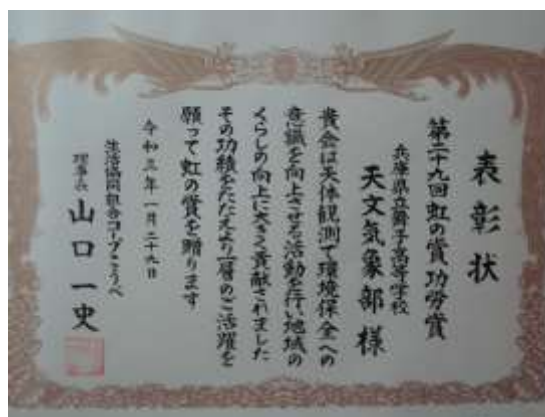 表彰状
第二十九回虹の賞功労賞
兵庫県立舞子高等学校
天文気象部 様
貴会は天体観測で環境保全への
意識を向上させる活動を行い地域の
くらしの向上に大きく貢献されました
その功績をたたえより一層のご活躍を
願って虹の賞を贈ります
令和三年一月二十九日
生活協同組合コープこうべ
理事長 山口一史